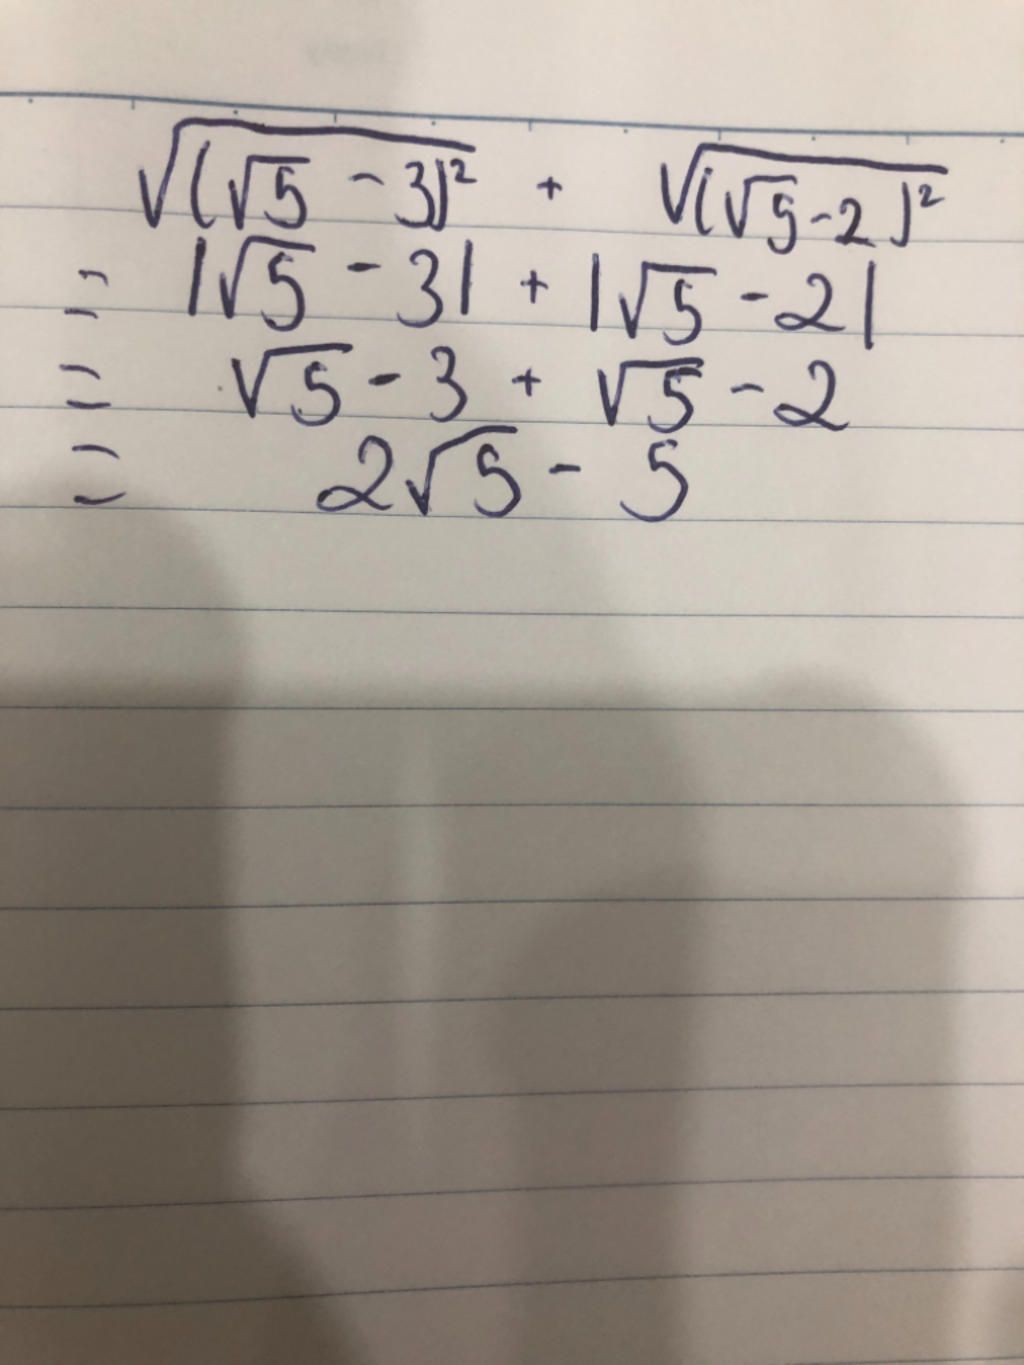 √(√5 - 3)² + √(√5 - 2)²
= |√5 - 3| + |√5 - 2|
= √5 - 3 + √5 - 2
= 2√5 - 5